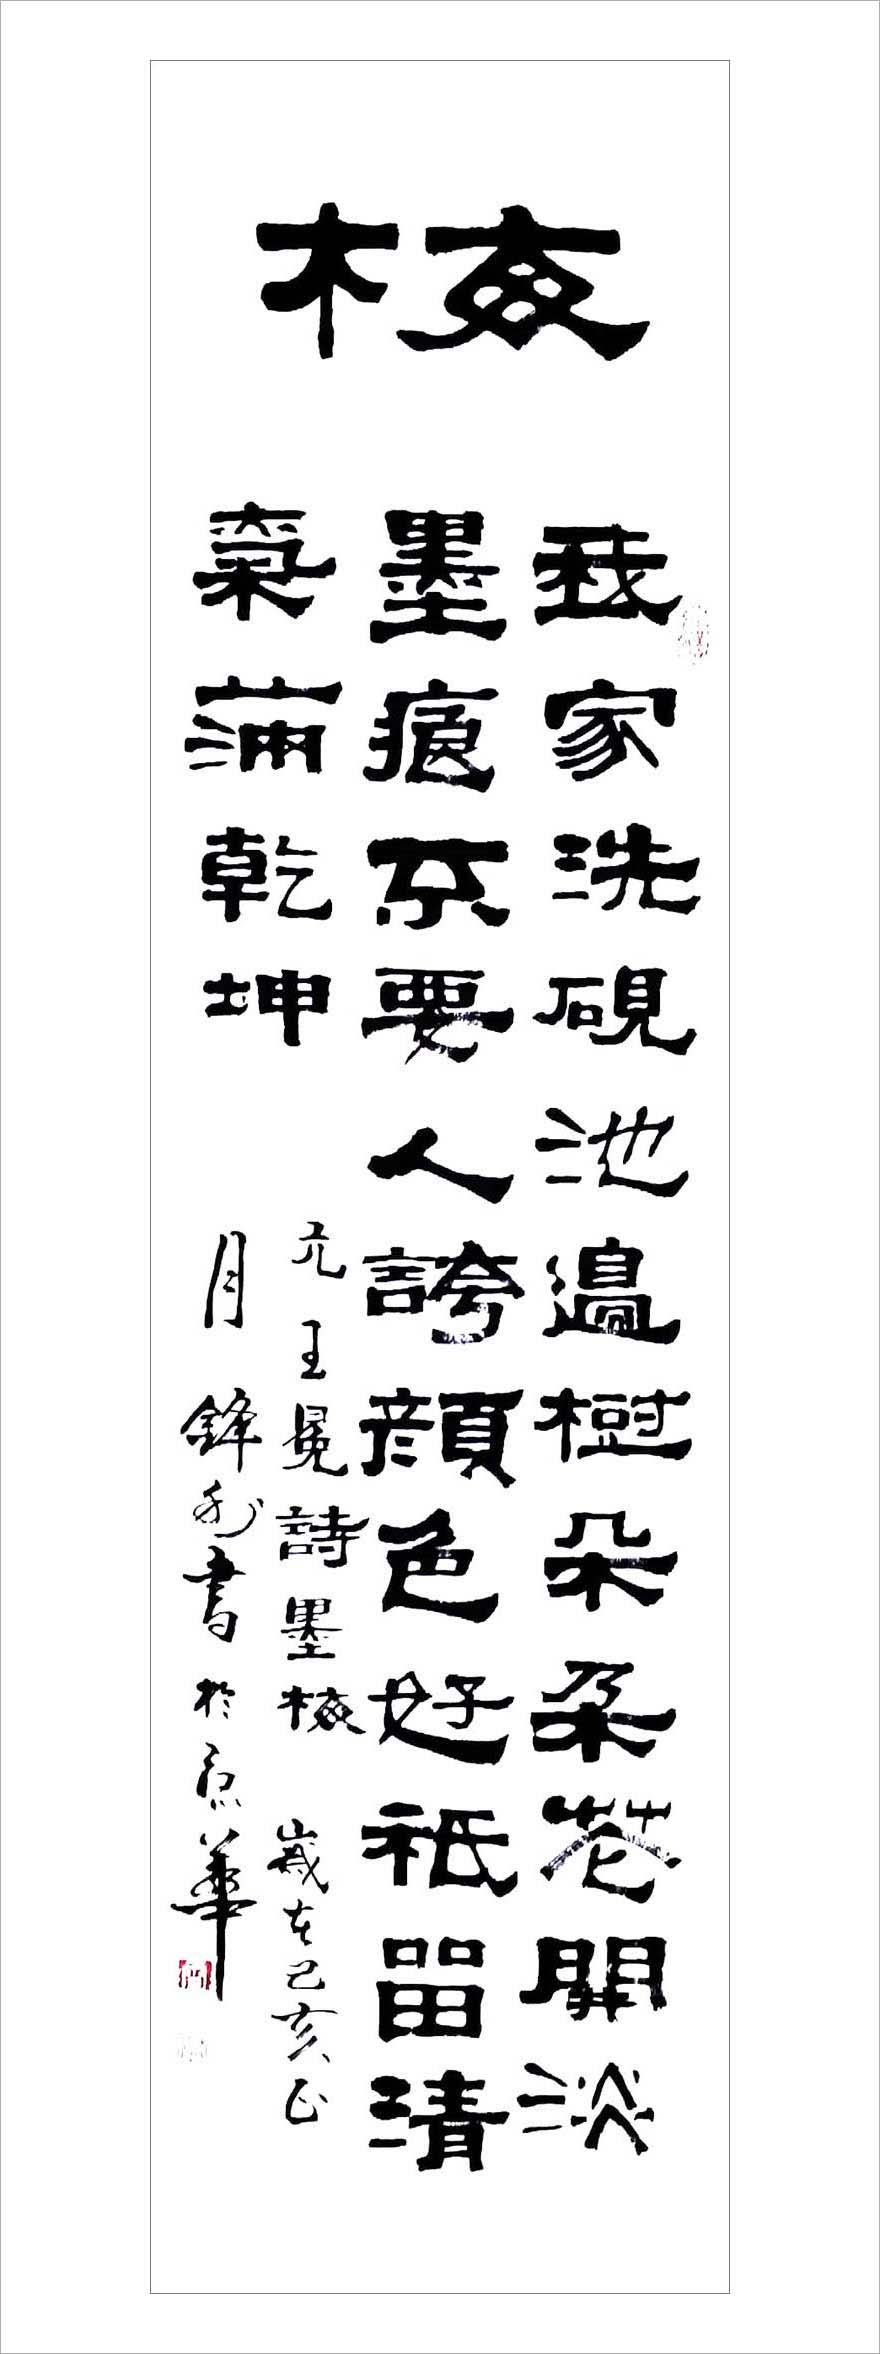 梅
我家洗硯池邊樹朵朵花開淡
墨痕不要人誇顏色好祇留清
氣滿乾坤
元王冕詩墨梅 歲在己亥正
月 鋒利書於京華